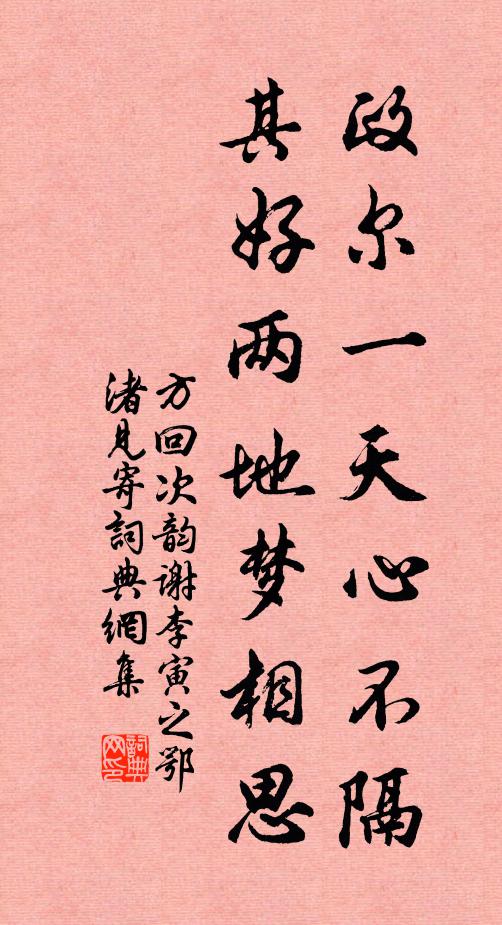 政尔一天心不隔
其好两地梦相思
方回次韵谢李寅之鄂
渚见寄詞典網集
詞典网印